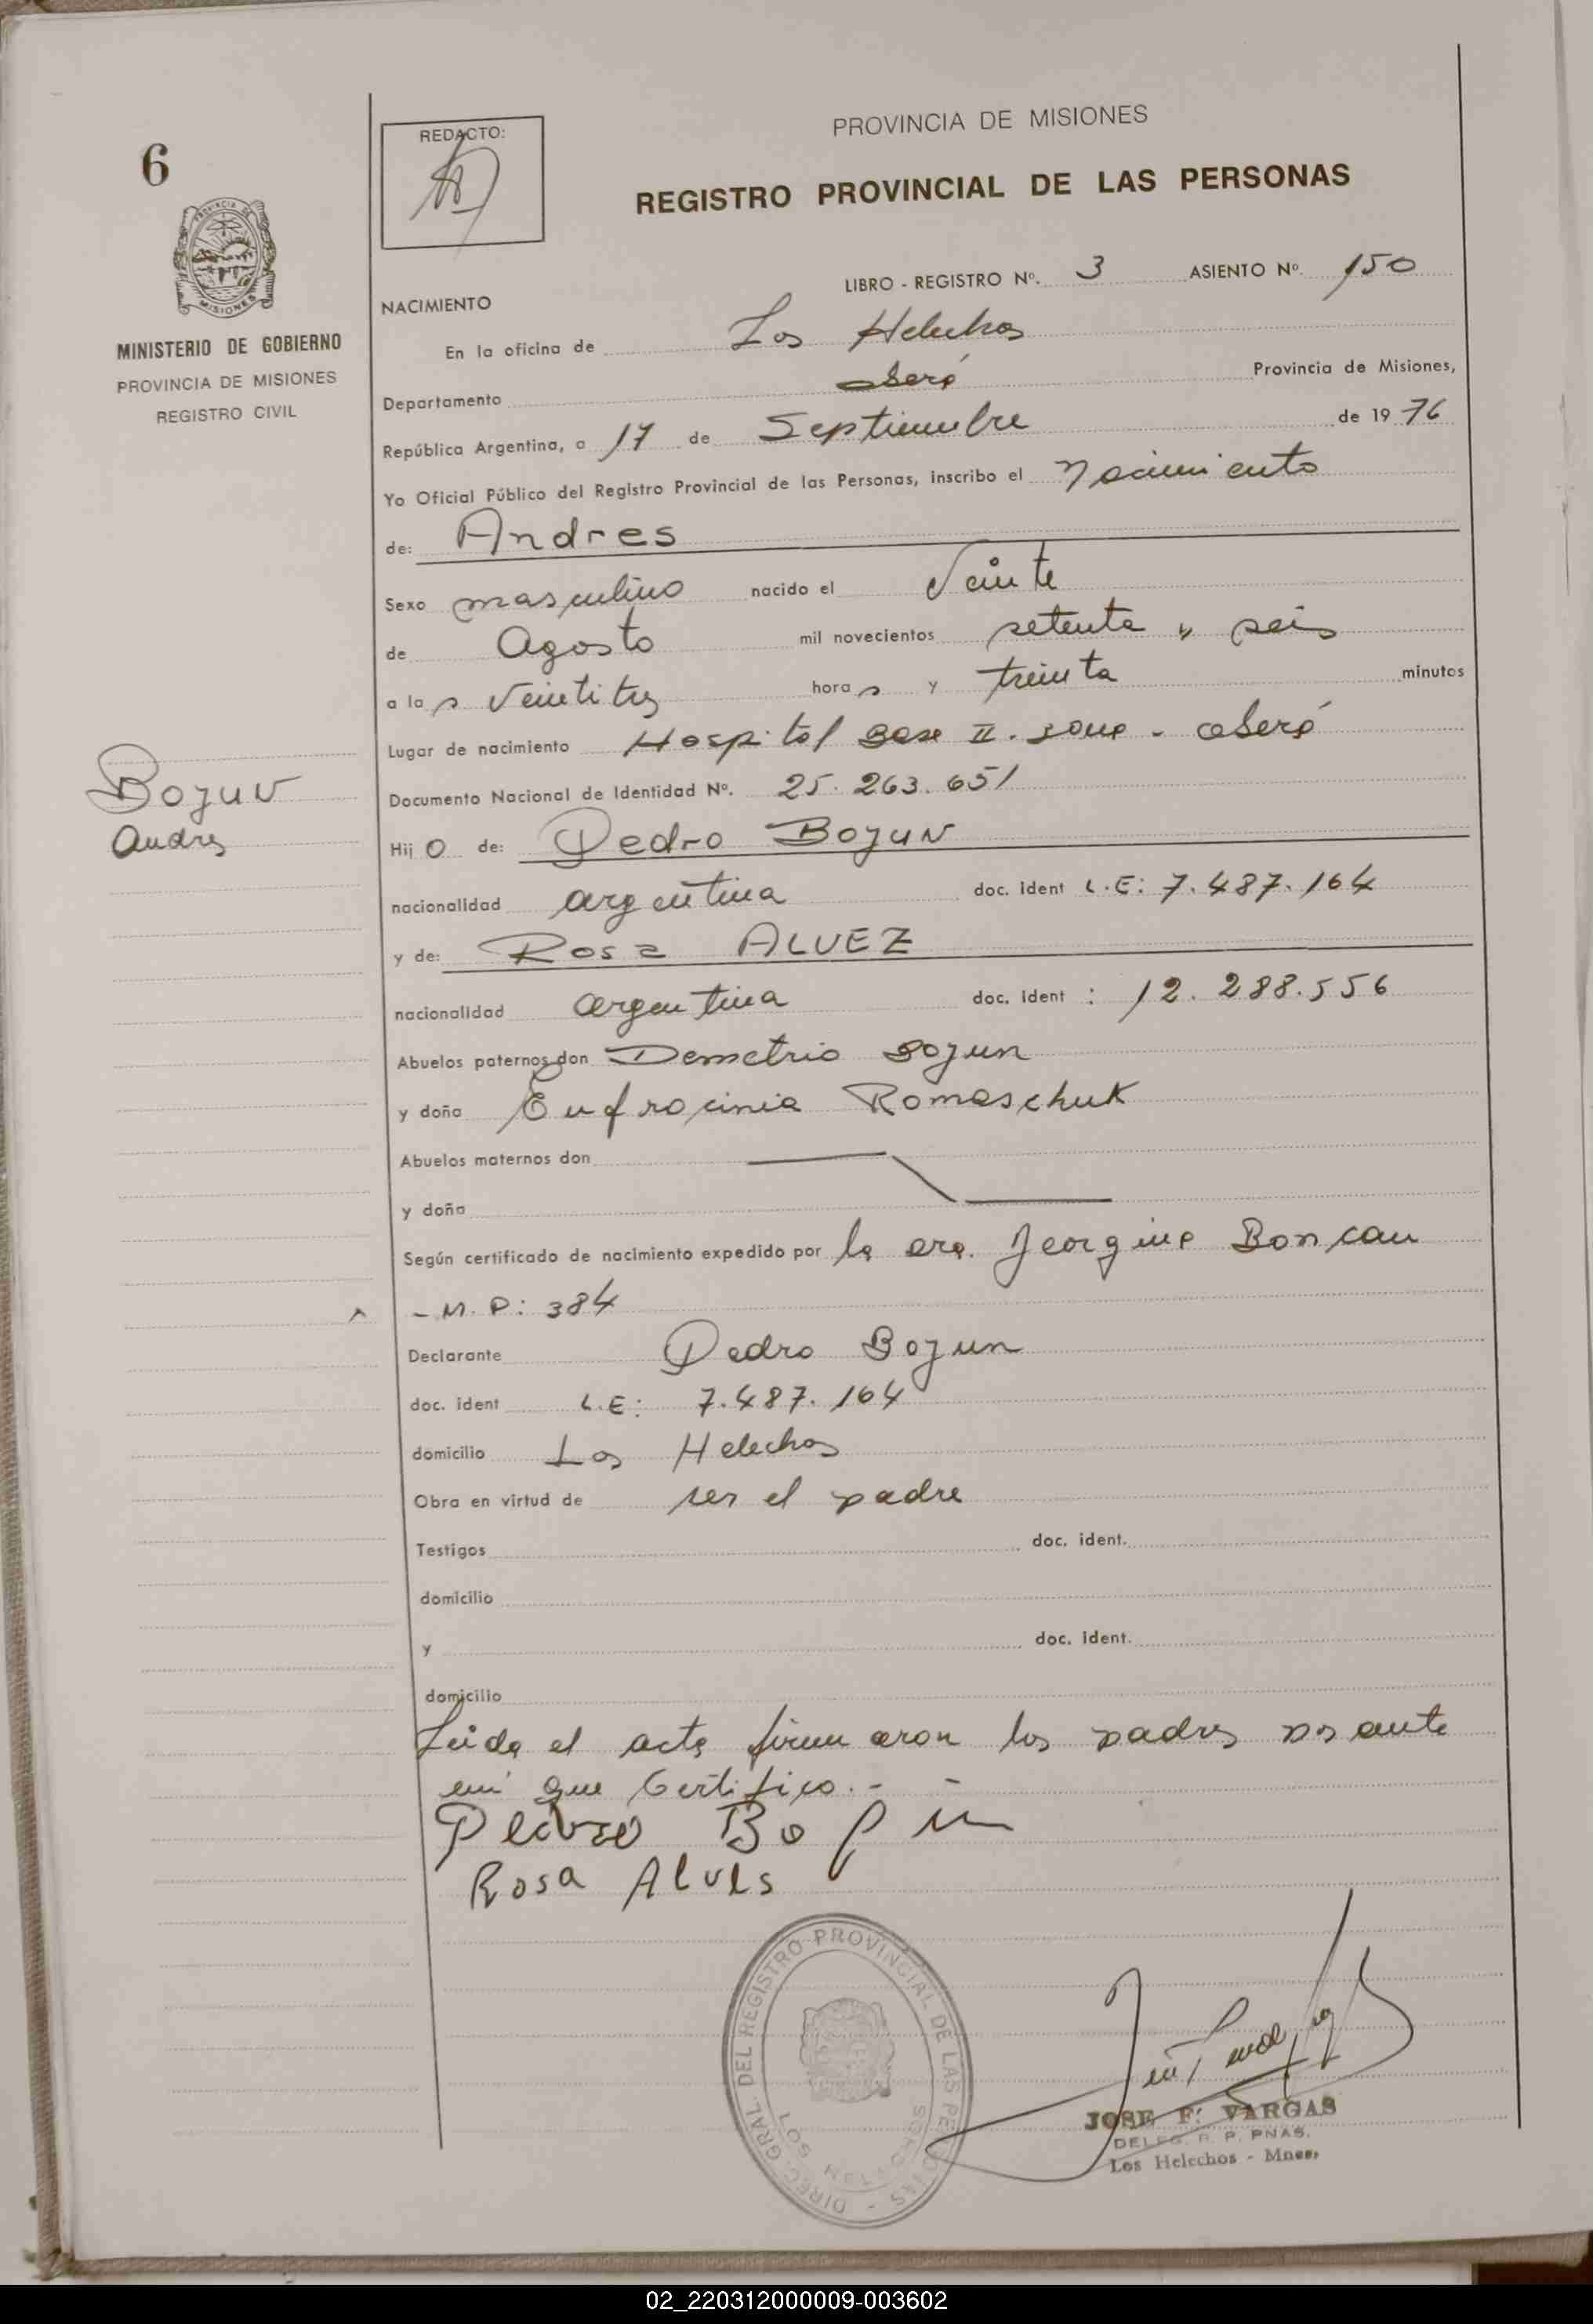 6
PROVINCIA DE MISIONES
MINISTERIO DE GOBIERNO
PROVINCIA DE MISIONES
REGISTRO CIVIL
REDACTO:
PROVINCIA DE MISIONES
REGISTRO PROVINCIAL DE LAS PERSONAS
LIBRO - REGISTRO Nº. 3 ASIENTO Nº. 150
NACIMIENTO
En la oficina de Los Helechos
Departamento Oberá Provincia de Misiones,
República Argentina, a 17 de Septiembre de 19 76
Yo Oficial Público del Registro Provincial de las Personas, inscribo el Nacimiento
de: Andres
Sexo masculino nacido el Veinte
de Agosto mil novecientos setenta y seis
a la s Veintitres hora s y treinta minutos
Lugar de nacimiento Hospital Base II. zona - Oberá
Documento Nacional de Identidad Nº. 25.263.651
Bojun
Andres
Hij o de: Pedro BOJUN
nacionalidad argentina doc. ident L.E: 7.487.164
y de: Rosa ALVEZ
nacionalidad argentina doc. ident : 12.288.556
Abuelos paternos don Demetrio Bojun
y doña Eufrocinia Romaschuk
Abuelos maternos don
y doña
Según certificado de nacimiento expedido por la Dra. Jeorgina Boncau
- M.P: 384
Declarante Pedro Bojun
doc. ident L.E: 7.487.164
domicilio Los Helechos
Obra en virtud de ser el padre
Testigos doc. ident.
domicilio
y doc. ident.
domicilio
Leida el acta firmaron los padres ante
mi que Certifico.- -
Pedro Bojun
Rosa Alves
DIREC. GRAL DEL REGISTRO PROVINCIAL DE LAS PERSONAS -
LOS HELECHOS
JOSE F. VARGAS
DELEG. R. P. PNAS.
Los Helechos - Mnes.
02_220312000009-003602